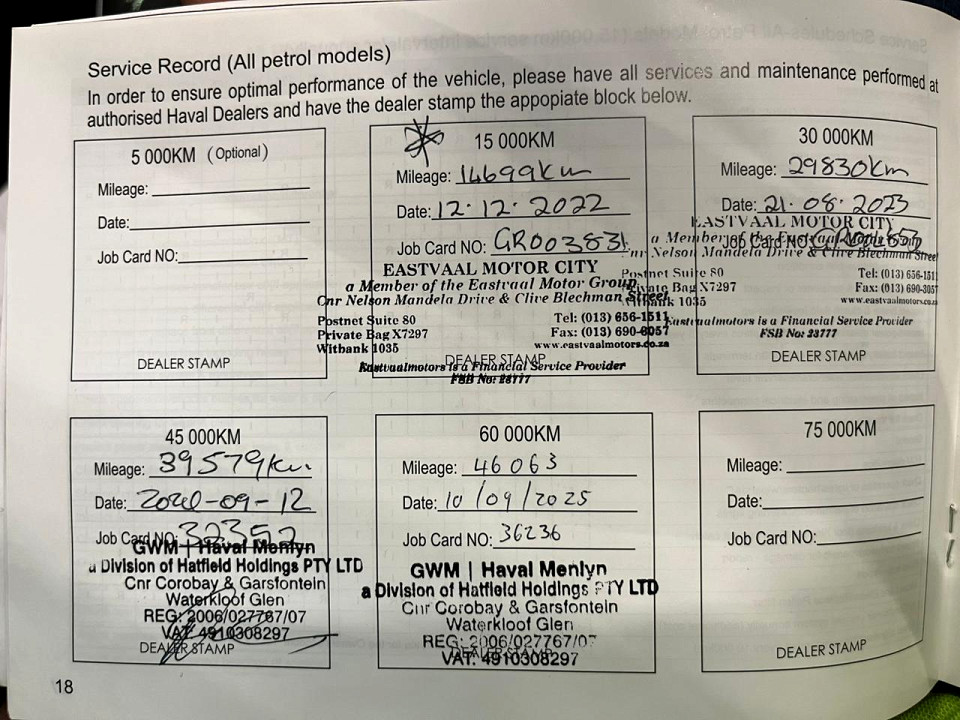 Service Record (All petrol models)
In order to ensure optimal performance of the vehicle, please have all services and maintenance performed at
authorised Haval Dealers and have the dealer stamp the appopiate block below.
5 000KM (Optional)
Mileage:
Date:
Job Card NO:
DEALER STAMP
15 000KM
Mileage: 14699km
Date: 12.12.2022
Job Card NO: GR003831
EASTVAAL MOTOR CITY
a Member of the Eastvaal Motor Group
Cnr Nelson Mandela Drive & Clive Blechman Street
Postnet Suite 80
Private Bag X7297
Witbank 1035
Tel: (013) 656-1511
Fax: (013) 690-8057
www.eastvaalmotors.co.za
DEALER STAMP
Eastvaalmotors is a Financial Service Provider
FSB No: 23777
30 000KM
Mileage: 29830km
Date: 21.08.2023
EASTVAAL MOTOR CITY
Job Card NO:
a Member of the Eastvaal Motor
Cnr Nelson Mandela Drive & Clive Blechman Street
Postnet Suite 80
Private Bag X7297
Witbank 1035
Tel: (013) 656-1511
Fax: (013) 690-8057
www.eastvaalmotors.co.za
Eastvaalmotors is a Financial Service Provider
FSB No: 23777
DEALER STAMP
45 000KM
Mileage: 39579km
Date: -09-12
Job Card NO: 32352
GWM | Haval Menlyn
a Division of Hatfield Holdings PTY LTD
Cnr Corobay & Garsfontein
Waterkloof Glen
REG: 2006/027767/07
VAT: 4910308297
DEALER STAMP
60 000KM
Mileage: 46063
Date: 10/09/2025
Job Card NO: 36236
GWM | Haval Menlyn
a Division of Hatfield Holdings PTY LTD
Cnr Corobay & Garsfontein
Waterkloof Glen
REG: 2006/027767/07
DEALER STAMP
VAT: 4910308297
75 000KM
Mileage:
Date:
Job Card NO:
DEALER STAMP
18